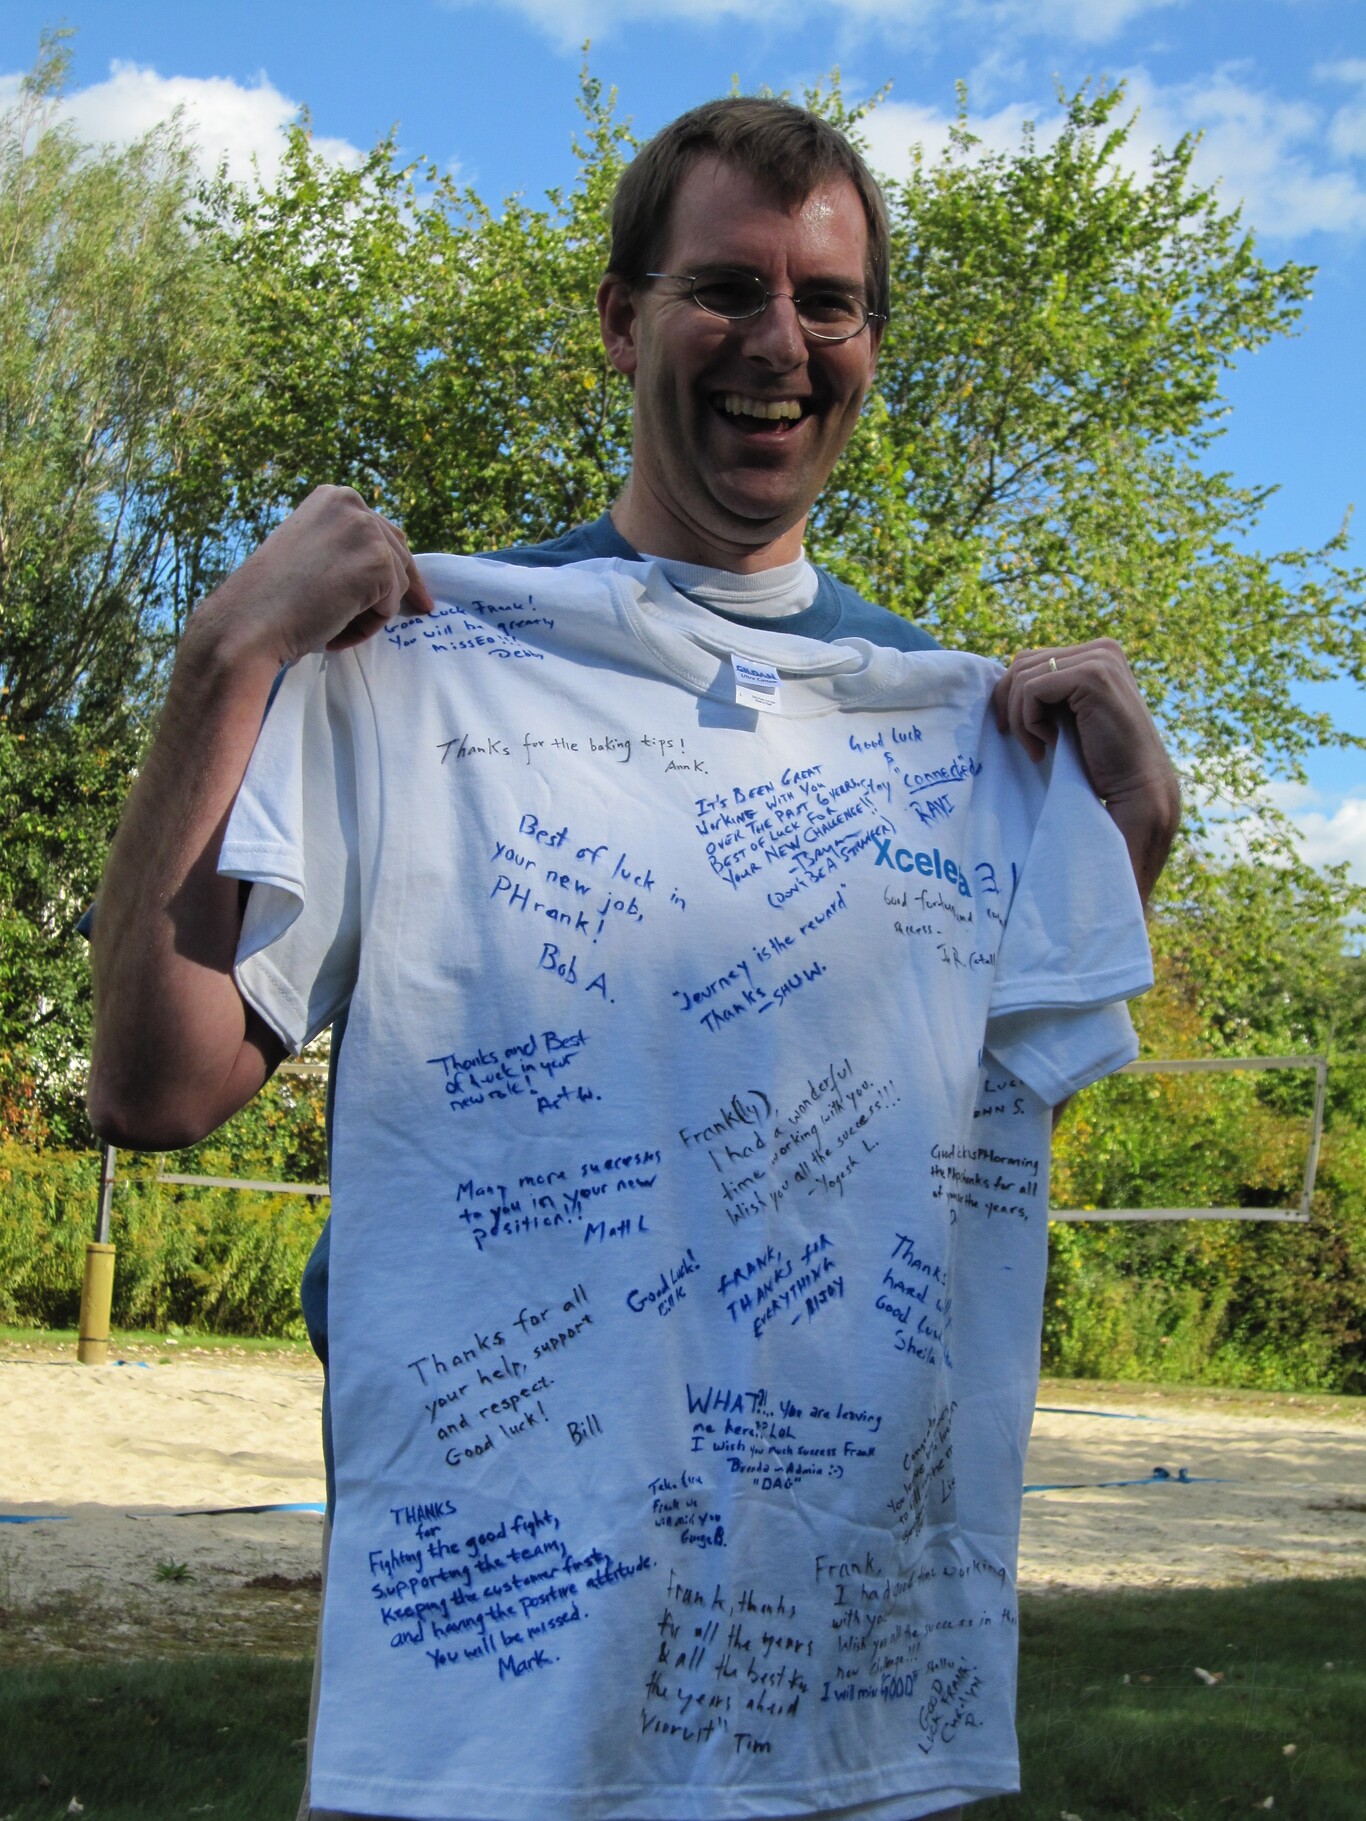 Good Luck Frank!
You will be greatly
missed!!!
Debby
GILDAN
Ultra Cotton
L
Thanks for the baking tips!
Ann K.
Good Luck
&
stay "connected"
RAVI
IT'S BEEN GREAT
WORKING WITH YOU
OVER THE PAST 6 YEARS.
BEST OF LUCK FOR
YOUR NEW CHALLENGE!!
(DON'T BE A STRANGER)
Best of luck in
your new job,
PHrank!
Bob A.
Xcele
Good
success.
"Journey is the reward"
Thanks
Thanks and Best
of Luck in your
new role!
Art W.
Luc
OHN S.
Frank(ly),
I had a wonderful
time working with you.
Wish you all the success!!!
-Yogesh L.
the
thanks for all
the years,
Many more successes
to you in your new
position!!
Matt L
Good Luck!
FRANK,
THANKS FOR
EVERYTHING
-BIJOY
Thank
hard
Good Luc
Sheila
Thanks for all
your help, support
and respect.
Good luck!
Bill
WHAT?!... You are leaving
me here?? LOL
I wish you much success Frank
Brenda ~ Admin :-)
"DAG"
Take Care
Frank we
will miss you
George B.
THANKS
for
Fighting the good fight,
supporting the team,
keeping the customer first,
and having the positive attitude.
You will be missed.
Mark.
Frank, thanks
for all the years
& all the best for
the years ahead
"Vooruit"
Tim
Frank,
I had working
with yo
Wish you all the success in
new challenge!!!
I will miss "GOOD"
GOOD
LUCK FRANK!
CAROLYN
R.